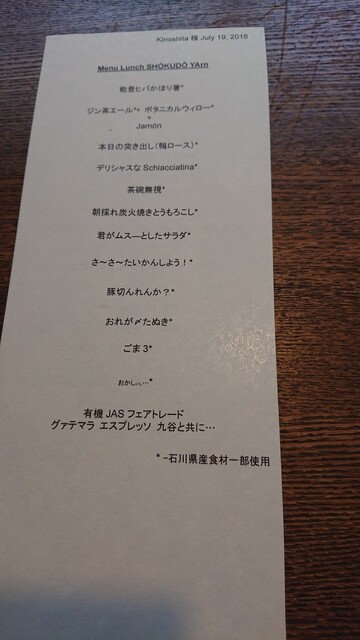 Kinoshita 様 July 19, 2018
Menu Lunch SHŌKUDŌ YArn
能登ヒバかほり箸*
ジン茶エール*+ ボタニカルウィロー*
+
Jamón
本日の突き出し(鴨ロース)*
デリシャスな Schiacciatina*
茶碗無視*
朝採れ炭火焼きとうもろこし*
君がムス―としたサラダ*
さ~さ~たいかんしよう!*
豚切んれんか?*
おれが〆たぬき*
ごま 3*
おかし…*
有機 JAS フェアトレード
グァテマラ エスプレッソ 九谷と共に…
* −石川県産食材一部使用